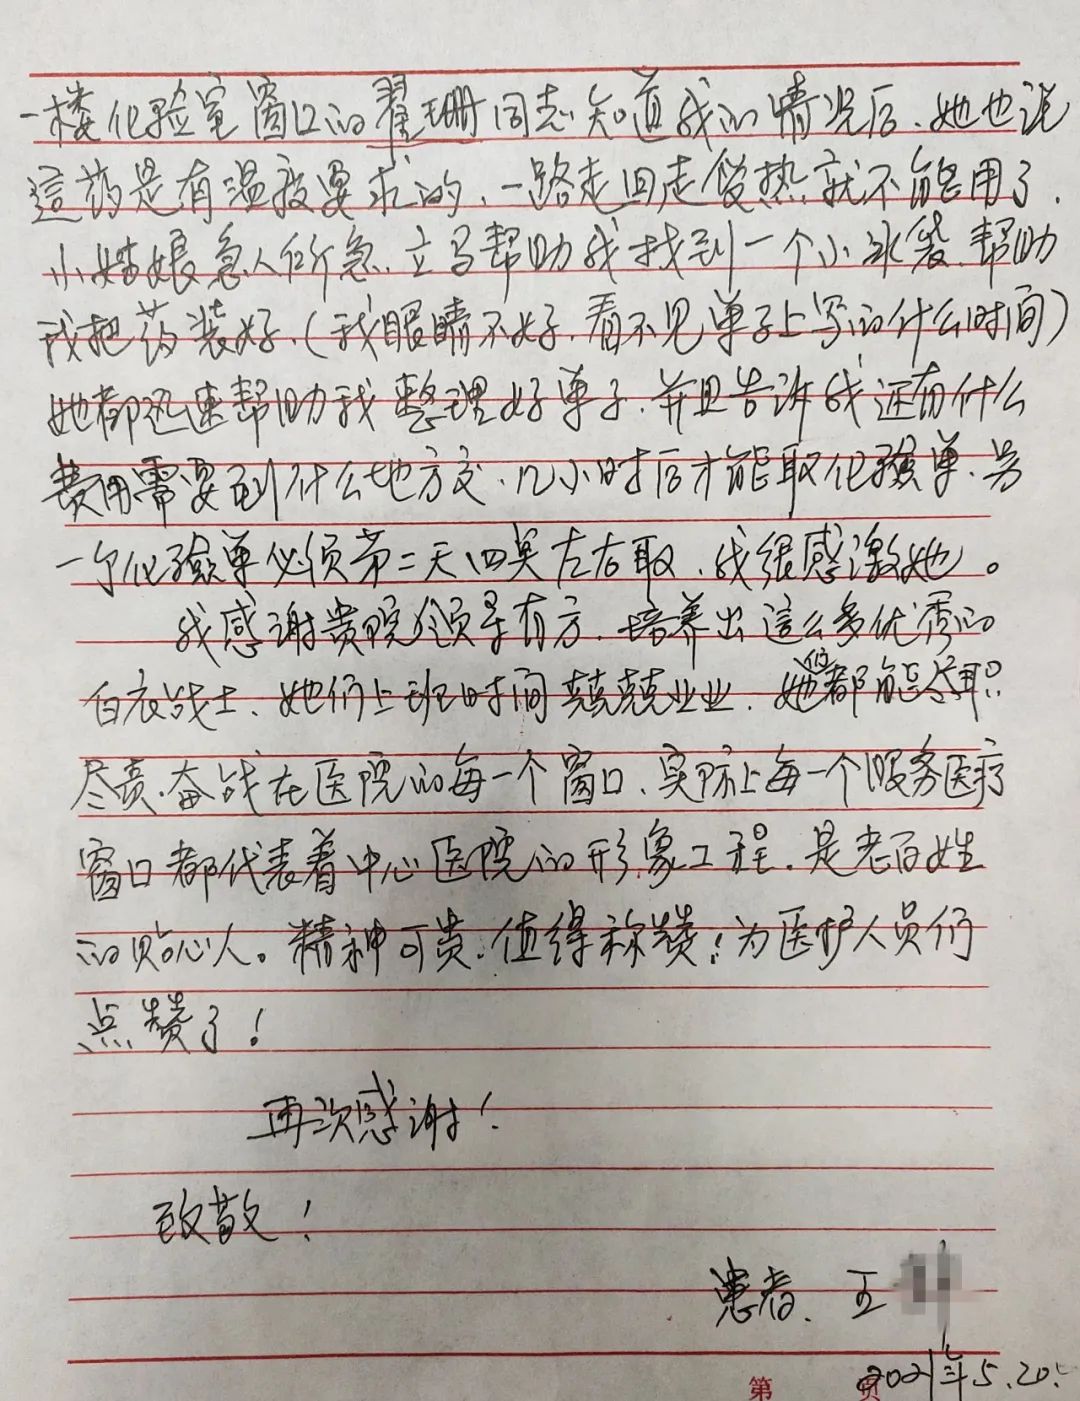 一楼化验室窗口的翟珊同志知道我的情况后、她也说
這药是有温度要求的、一路走回走受热就不能用了、
小姑娘急人所急、立马帮助我找到一个小冰袋、帮助
我把药装好、(我眼睛不好、看不见单子上写的什么时间)
她都迅速帮助我整理好单子、并且告诉我还有什么
费用需要到什么地方交、几小时后才能取化验单、另
一个化验单必须第二天四点左右取、我很感激她。
我感谢贵院领导有方、培养出這么多优秀的
白衣战士、她们上班时间兢兢业业、她们都能尽职
尽责、奋战在医院的每一个窗口、实际上每一个服务医疗
窗口都代表着中心医院的形象工程、是老百姓
的贴心人。精神可贵、值得称赞!为医护人员们
点赞了!
再次感谢!
致敬!
患者、王
2021年5.20.
第 页